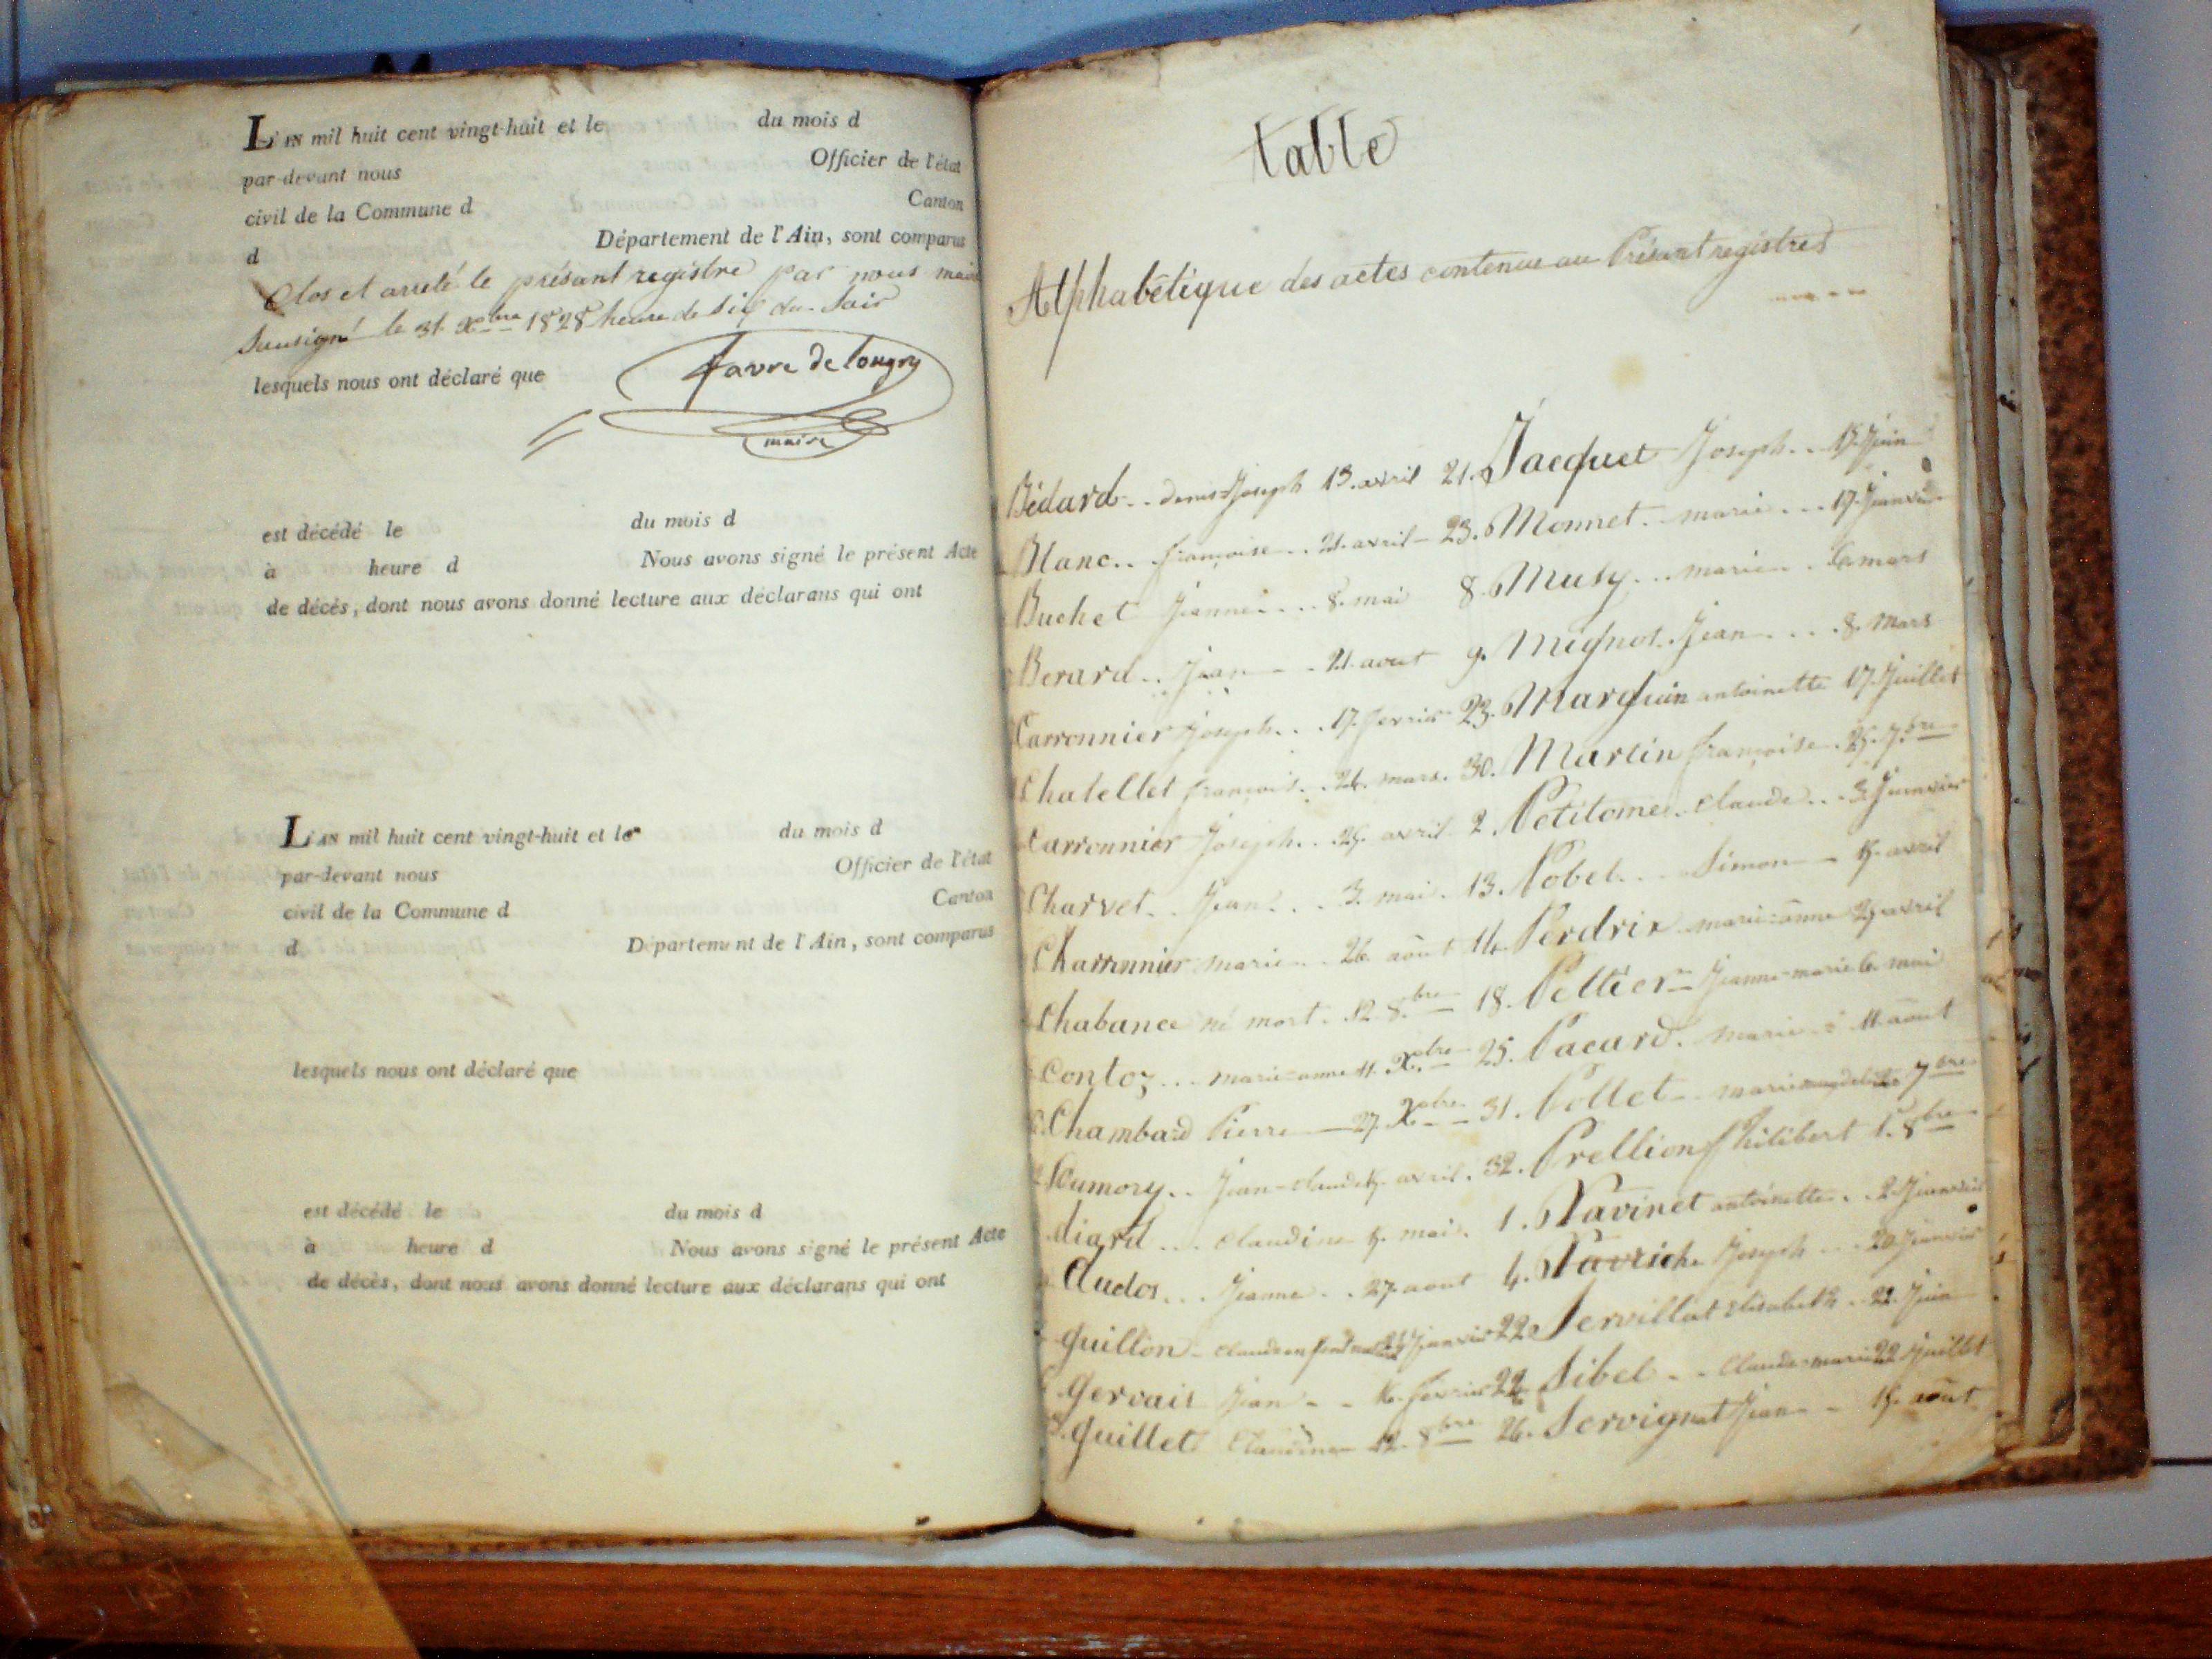 L'AN mil huit cent vingt-huit et le du mois d
par-devant nous Officier de l'état
civil de la Commune d Canton
d Département de l'Ain, sont comparus
Clos et arreté le présant registre par nous maire
Sousigné le 31. Xbre 1828 heure de six du Soir
lesquels nous ont déclaré que
favre de longry
maire
est décédé le du mois d
à heure d Nous avons signé le présent Acte
de décès, dont nous avons donné lecture aux déclarans qui ont
L'AN mil huit cent vingt-huit et le du mois d
par-devant nous Officier de l'état
civil de la Commune d Canton
d Département de l'Ain, sont comparus
lesquels nous ont déclaré que
est décédé le du mois d
à heure d Nous avons signé le présent Acte
de décès, dont nous avons donné lecture aux déclarans qui ont
table
Alphabétique des actes contenus au Présant registres
Bédard denis=Joseph 13. avril 21. Jacquet Joseph 15. Juin
Blanc françoise 21. avril 23. Monnet marie 17. Janvier
Buchet Jeanne 8. mai 8. Musy marie 6. mars
Berard Jean 21. aout 9. Mignot Jean 8. Mars
Carronnier Joseph 17. fevrier 23. Marguin antoinette 17. Juillet
Chatellet françois 24. mars 30. Martin françoise 25. 7bre
Carronnier Joseph 25. avril 2. Petitome Claude 3. Janvier
Charvet Jean 3. mai 13. Pobel Simon 15. avril
Charronnier marie 26. août 14. Perdrix marie=anne 29 avril
Chabance né mort 12. 8bre 18. Peltier Jeanne-marie 6. mai
Contoz marie=anne 11. Xbre 25. Pacard marie 11. aout
Chambard Pierre 27. Xbre 31. Pollet marie 7bre
Jean-Claude avril 32. Prellion Philibert 1. 8bre
diard Claudine mai 1. Ravinet antoinette 2. Janvier
duclos Jeanne 27. aout 4. Joseph 20 Janvier
guillon Janvier 22. Servillat Elisabeth 22. Juin
gervais Jean fevrier 24. Sibel Claude=marie 22 Juillet
guillet Claudine 12. 8bre 26. Servignat Jean 15. août